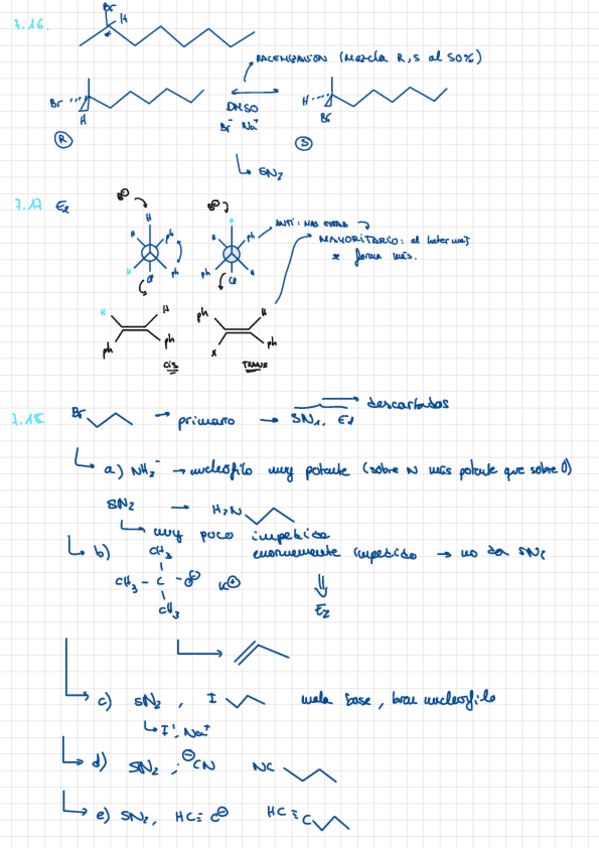 7.16.
Br
H
*
RACEMIZACIÓN (Mezcla R, S al 50%)
Br
H
DMSO
Br⁻ Na⁺
H
Br
R
S
SN2
7.17 E2
H
ph
ph
Cl
ph
ph
Cl
ANTI: MAS ESTABLE
MAYORITARIO: al haber mas
se forma más.
H
H
ph
ph
cis
ph
H
ph
TRANS
7.15
Br
→ primario → SN1, E1
descartados
a) NH₂⁻ → nucleofilo muy potente (sobre N más potente que sobre O)
SN2 → H₂N
muy poco impedido
b)
CH₃
CH₃ - C - O⊖ K⊕
CH₃
enormemente impedido → no da SN2
E2
c) SN2, I
mala base, buen nucleofilo
I⁻, Na⁺
d) SN2, ⊖CN NC
e) SN2, HC≡C⊖ HC≡C